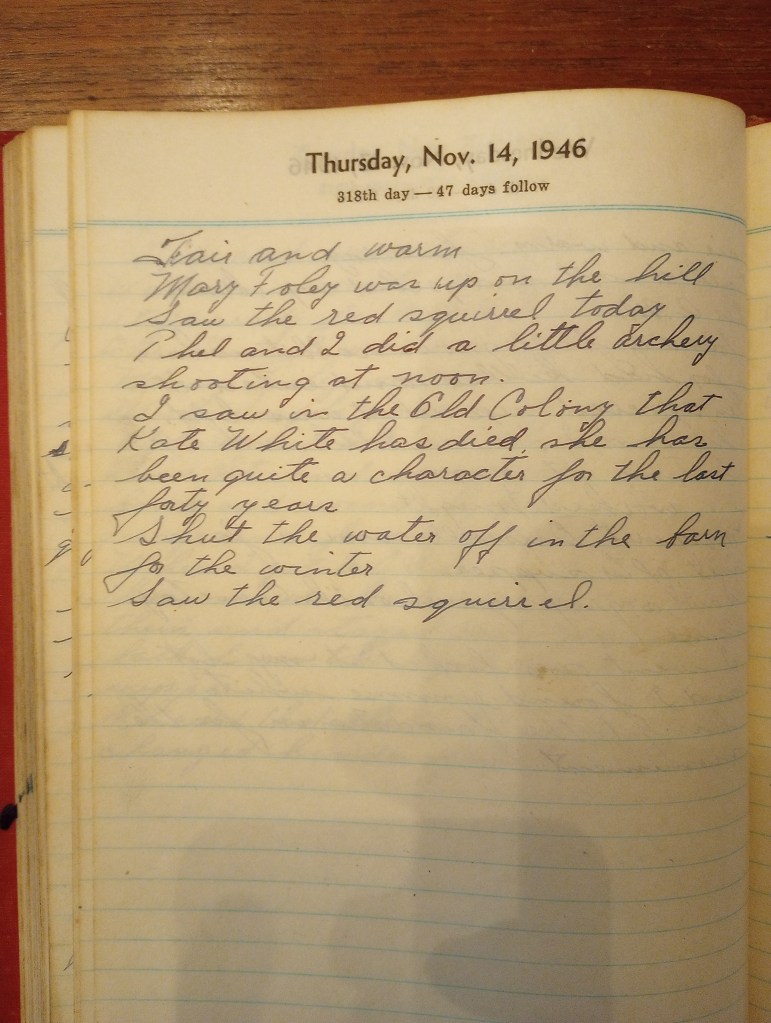 Thursday, Nov. 14, 1946
318th day — 47 days follow
Fair and warm
Mary Foley was up on the hill
Saw the red squirrel today
Phel and I did a little archery
shooting at noon.
I saw in the Old Colony that
Kate White has died, she has
been quite a character for the last
forty years
Shut the water off in the barn
for the winter
Saw the red squirrel.